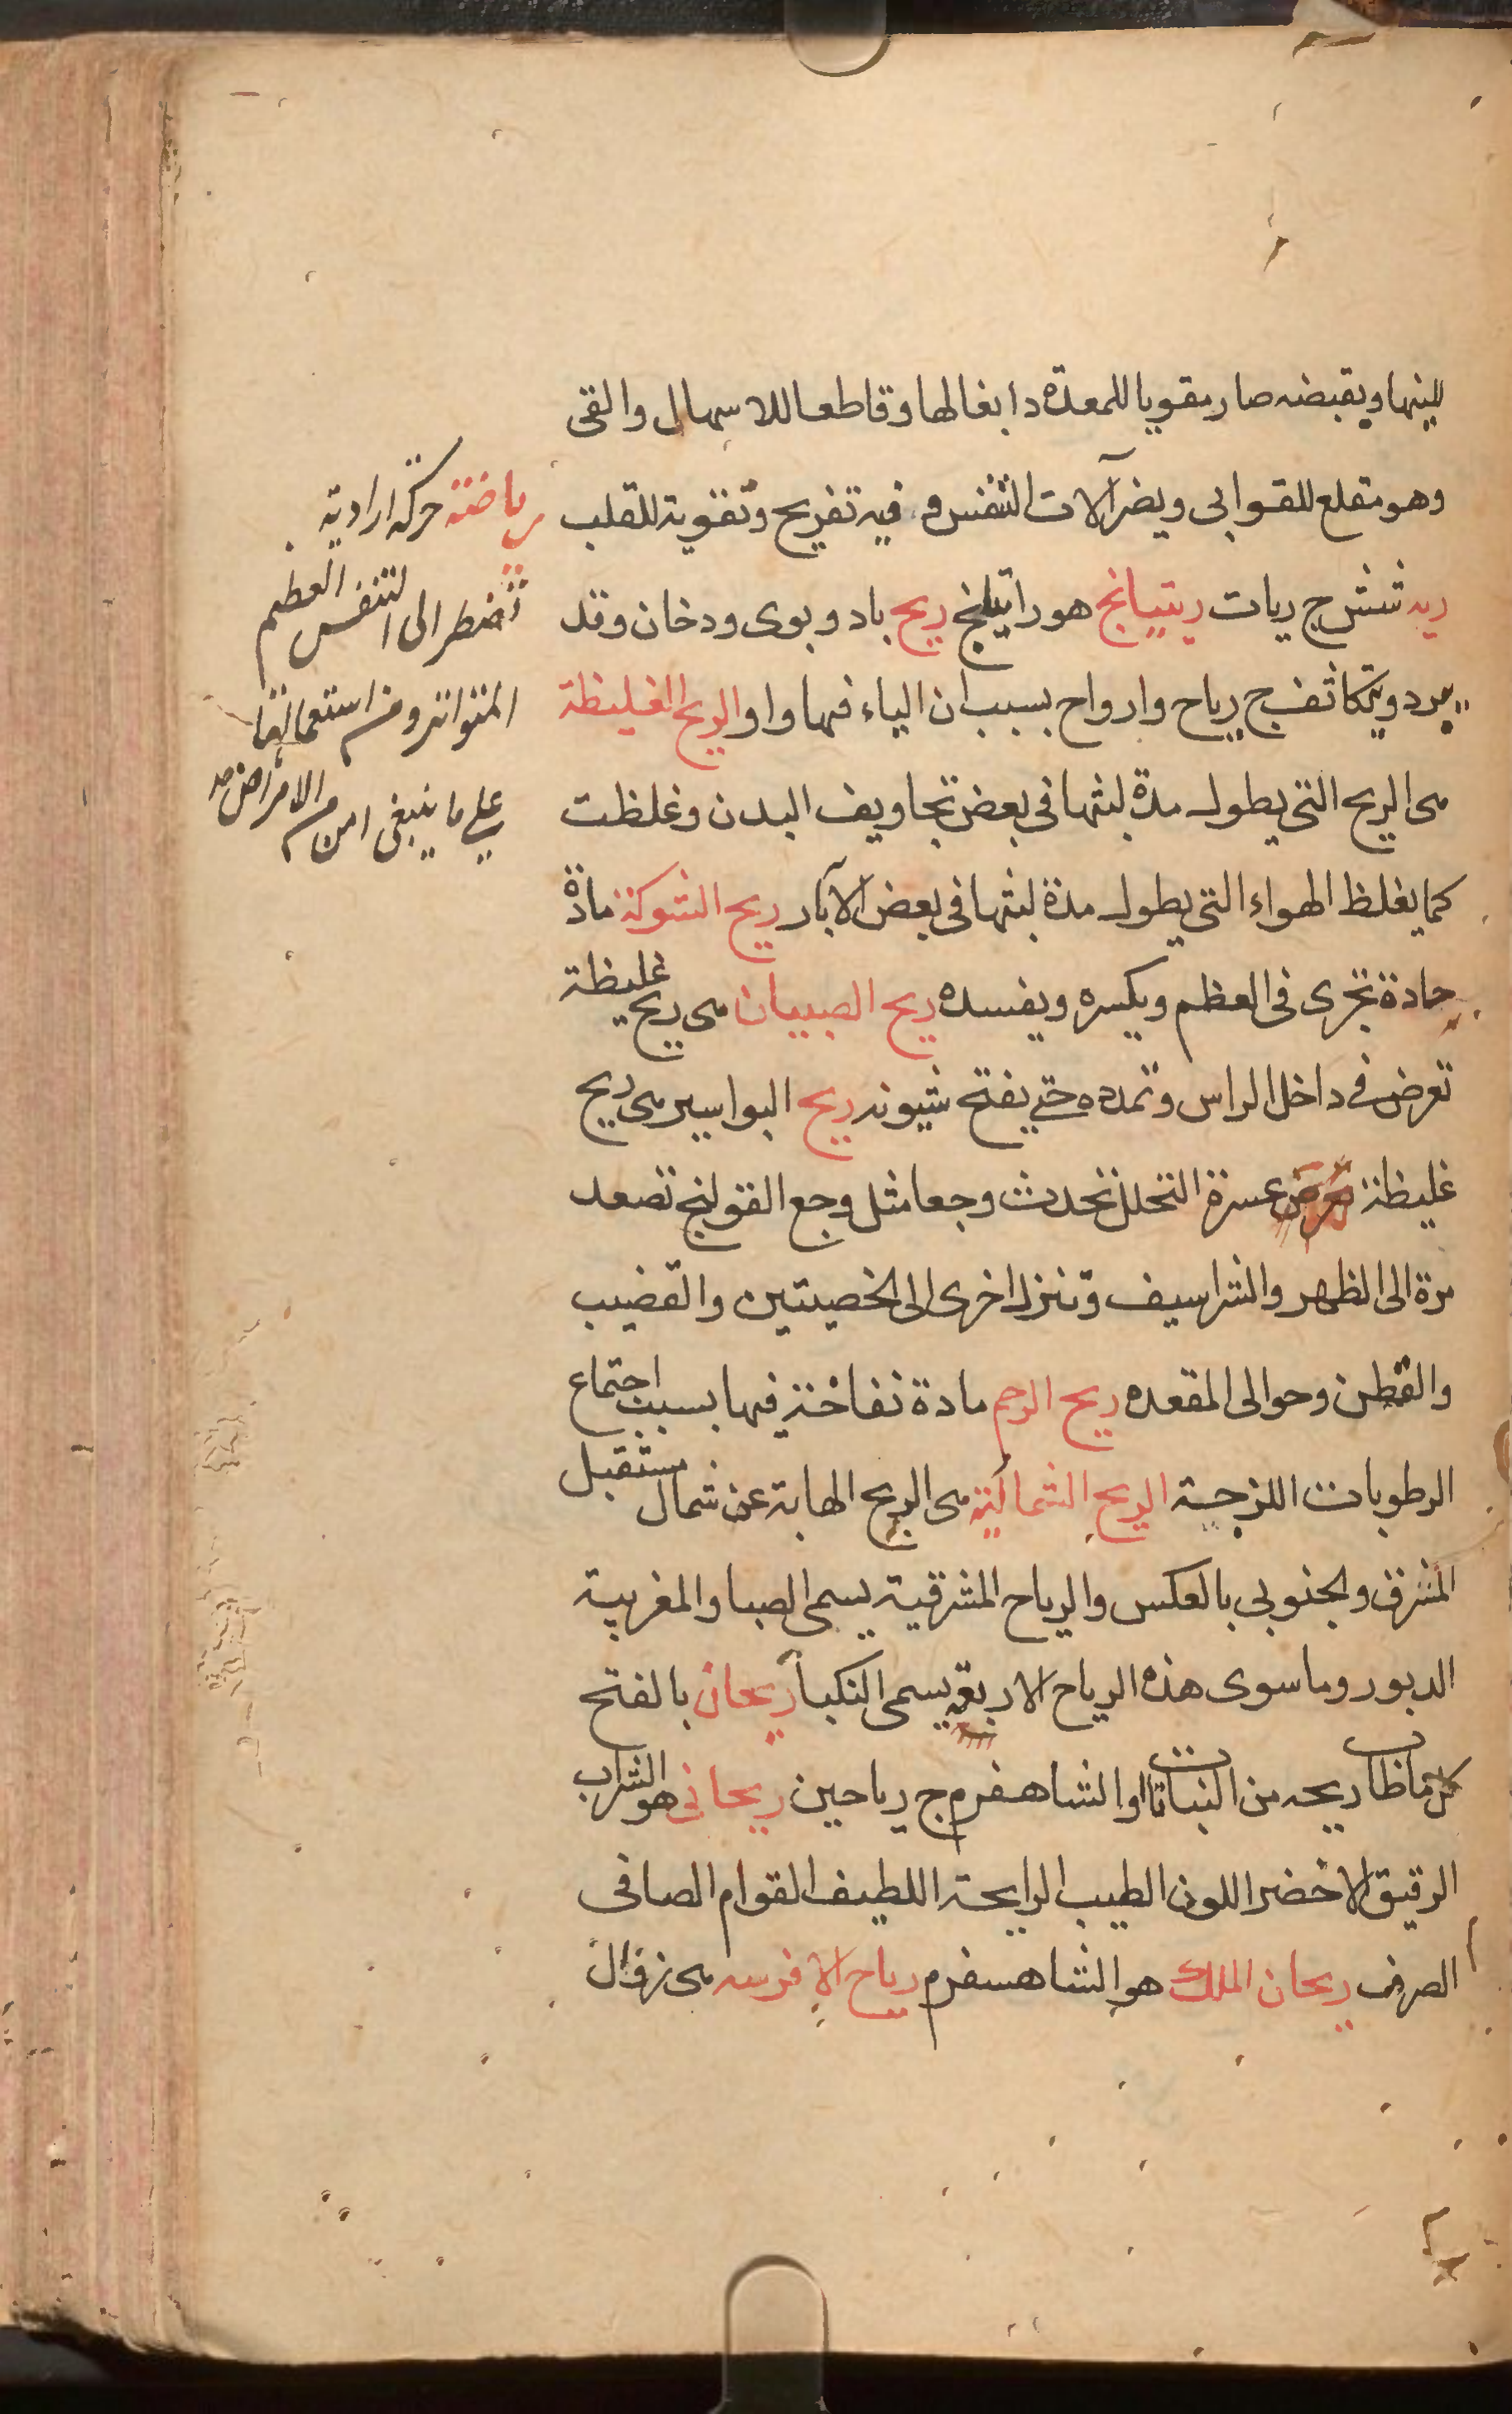 للينها ويقبضه صار مقويا للمعدة دابغا لها وقاطعا للاسهال والقى
وهو مقلع للقوابى ويضر آلات التنفس وفيه تفريح وتقوية للقلب
ريه شش ج ريات ريتيانج هو راتيانج ريح باد وبوى ودخان وقد
يبرد ويتكاثف ج رياح وارواح بسبب ان الياء فيها واو الريح الغليظة
هى الريح التى يطول مدة لبثها فى بعض تجاويف البدن وغلظت
كما يغلظ الهواء التى يطول مدة لبثها فى بعض الآبار ريح الشوكة مادة
حادة تجرى فى العظم ويكسره ويفسده ريح الصبيان هى ريح غليظة
تعرض فى داخل الراس وتمدده حتى يفتح شيونه ريح البواسير هى ريح
غليظة عسرة التحلل تحدث وجعا مثل وجع القولنج تصعد
مرة الى الظهر والشراسيف وتنزل اخرى الى الخصيتين والقضيب
والقطن وحوالى المقعده ريح الرحم مادة نفاخة فيها بسبب اجتماع
الرطوبات اللزجية الريح الشمالية هى الريح الهابة عن شمال مستقبل
المشرق والجنوبى بالعكس والرياح المشرقية يسمى الصبا والمغربية
الدبور وما سوى هذه الرياح الاربعة يسمى النكبا ريحان بالفتح
كل ما طاب ريحه من النباتات او الشاهفرم ج رياحين ريحانى هو الشراب
الرقيق الاخضر اللون الطيب الرايحة اللطيف القوام الصافى
الصرف ريحان الملك هو الشاهسفرم رياح الافرسه هى
رياضة حركة ارادية
تضطر الى التنفس العظيم
المتواتر ومن استعمالها
على ما ينبغى امن من الامراض